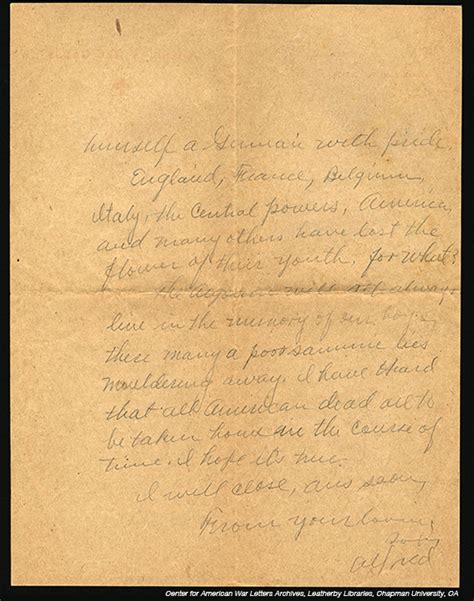 himself a German with pride.
England, France, Belgium,
Italy, the Central powers, America,
and many others have lost the
flower of their youth, for what?
The Argonne will always
live in the memory of our boys,
there many a poor sammie lies
mouldering away. I have heard
that all American dead are to
be taken home in the course of
time. I hope it's true.
I will close, ans soon,
From your loving
Son
Alfred
Center for American War Letters Archives, Leatherby Libraries, Chapman University, CA